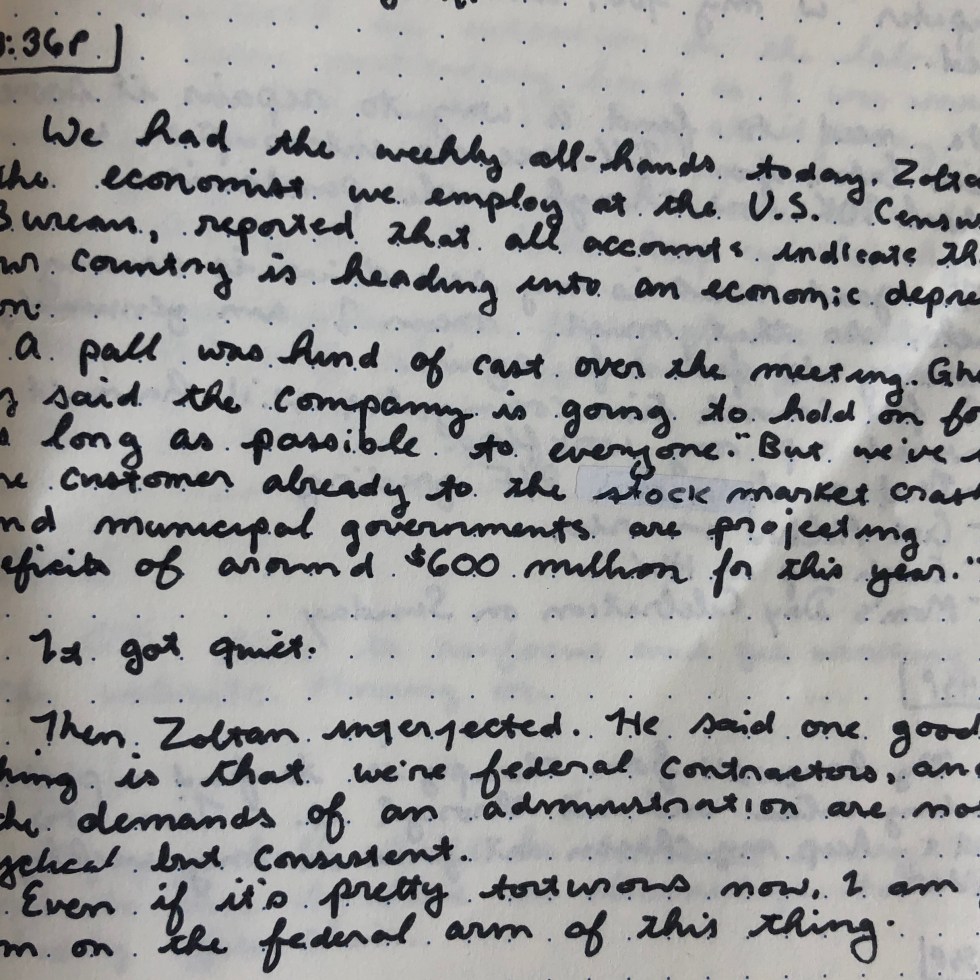 :36P
We had the weekly all-hands today. Zolta
the economist we employ at the U.S. Censu
Bureau, reported that all accounts indicate th
ur country is heading into an economic depre
on.
A pall was kind of cast over the meeting. Gh
said the company is going to hold on fo
long as possible to everyone. "But we've
ne customer already to the stock market cras
nd municipal governments are projecting
eficits of around $600 million for this year."
It got quiet.
Then Zoltan interjected. He said one good
hing is that we're federal contractors, an
he demands of an administration are no
yclical but consistent.
Even if it's pretty torturous now, I am
m on the federal arm of this thing.